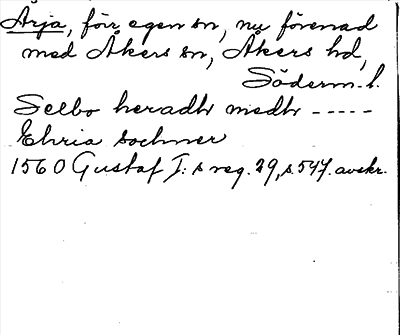 Arja, förr egen sn, nu förenad
med Åkers sn, Åkers hd,
Söderm. l.
Selbo heradh medh -----
Ehria sochner
1560 Gustaf I:s reg. 29, s. 547. avskr.